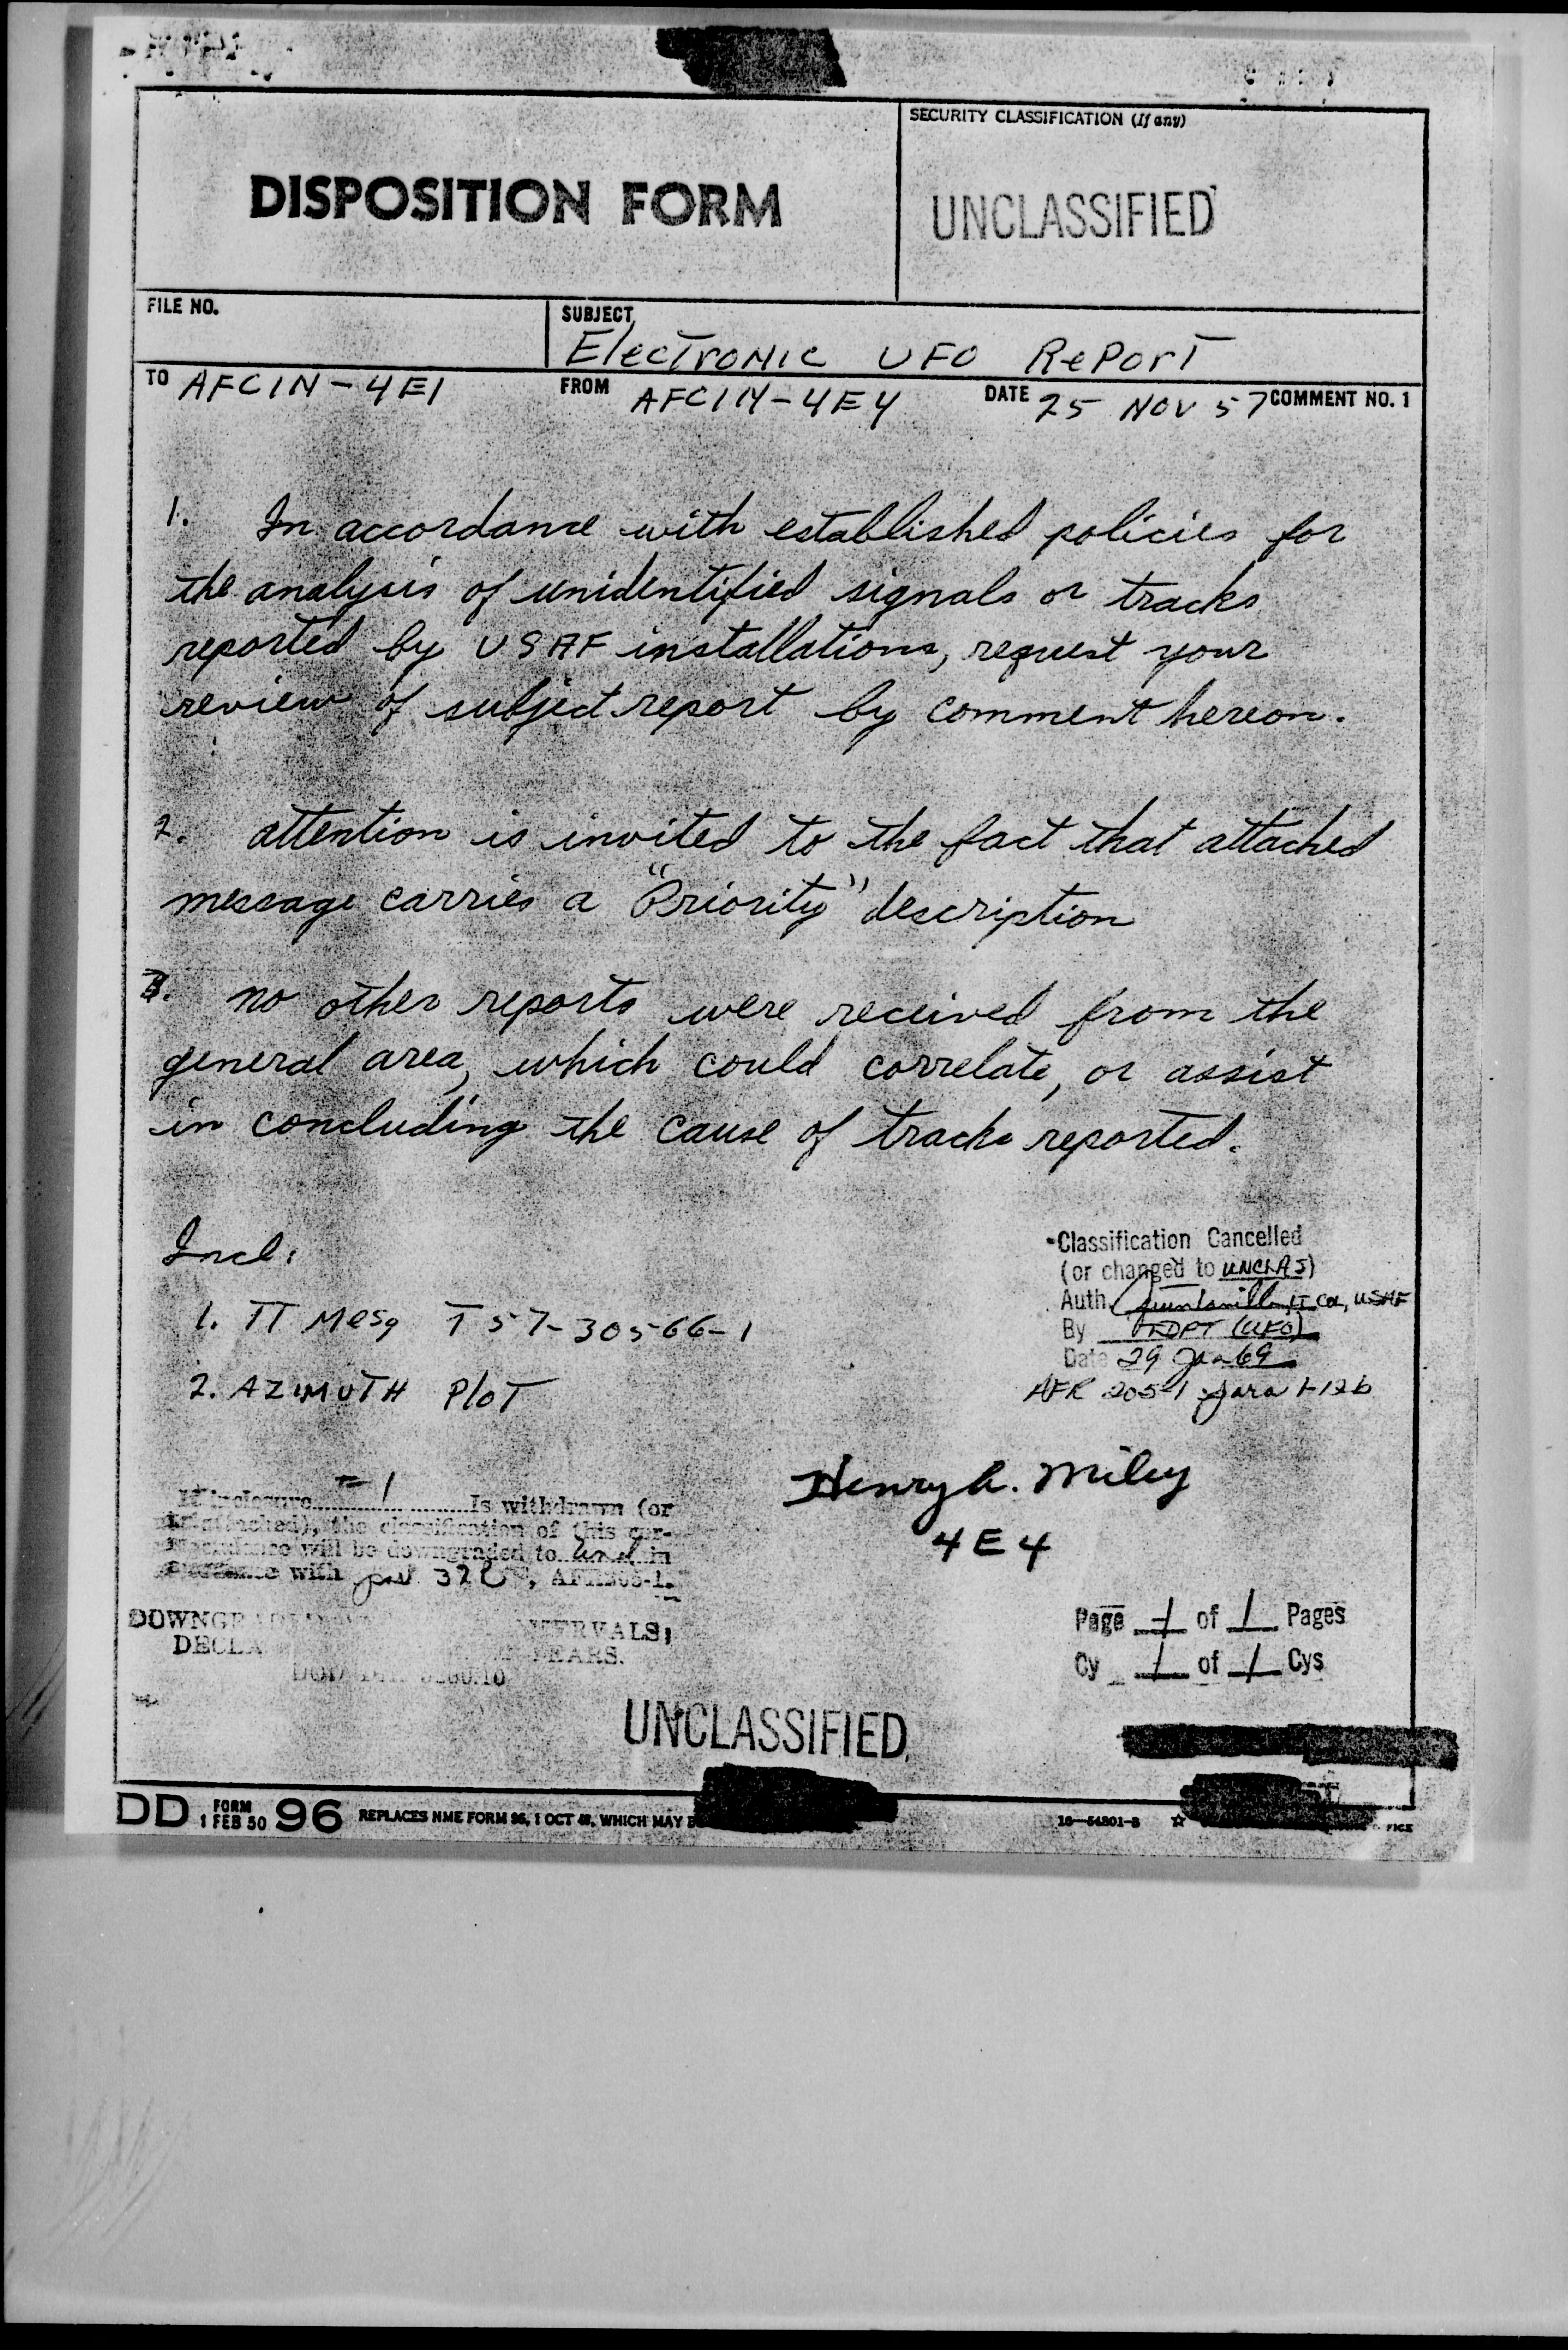 DISPOSITION FORM
SECURITY CLASSIFICATION (If any)
UNCLASSIFIED
FILE NO.
SUBJECT
Electronic UFO Report
TO AFCIN-4E1
FROM AFCIN-4E4
DATE 25 NOV 57 COMMENT NO. 1
1. In accordance with established policies for
the analysis of unidentified signals or tracks
reported by USAF installations, request your
review of subject report by comment hereon.
2. attention is invited to the fact that attached
message carries a "Priority" description
3. no other reports were received from the
general area, which could correlate, or assist
in concluding the cause of tracks reported.
Incl:
1. TT Mesg T57-30566-1
2. AZIMUTH PloT
Classification Cancelled
(or changed to UNCLAS)
Auth Quintanilla, LT Col, USAF
By TDPT (UFO)
Date 29 Jan 69
AFR 205-1 para 1-12b
Henry A. Miley
4E4
If inclosure 1 Is withdrawn (or
the classification of this cor-
will be downgraded to in
with par 32, AFR205-1.
DOWNGR INTERVALS;
DECLA YEARS.
Page 1 of 1 Pages
Cy 1 of 1 Cys
UNCLASSIFIED
DD FORM 1 FEB 50 96 REPLACES NME FORM 96, 1 OCT 48, WHICH MAY B
16—54801-3